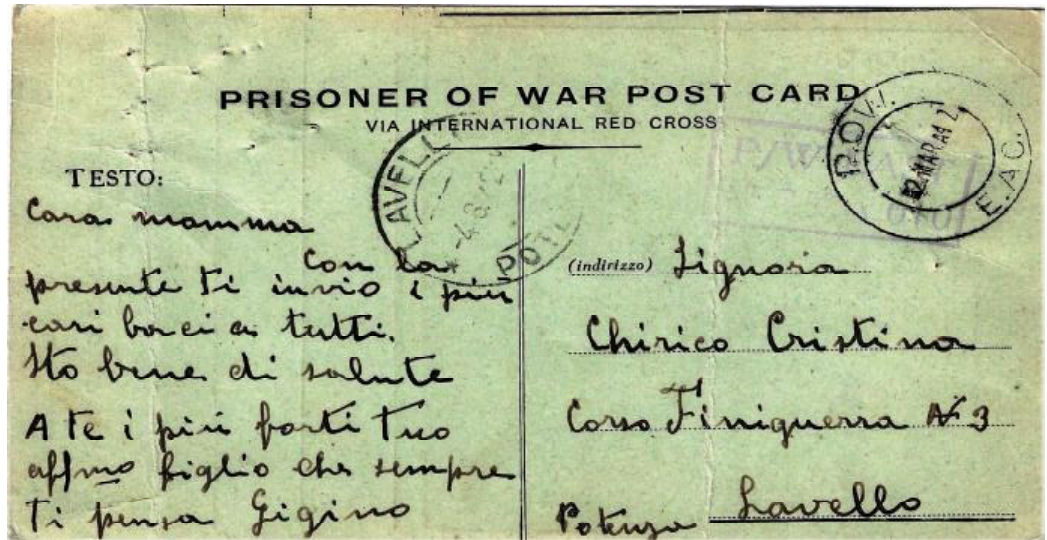 PRISONER OF WAR POST CARD
VIA INTERNATIONAL RED CROSS
P.O.W.
E.A.C.
LAVELLO
TESTO:
Cara mamma
Con la
presente ti invio i più
cari baci a tutti.
Sto bene di salute
A te i più forti Tuo
affmo figlio che sempre
Ti pensa Gigino
(indirizzo) Signora
Chirico Cristina
Corso Finiguerra N 3
Potenza Lavello